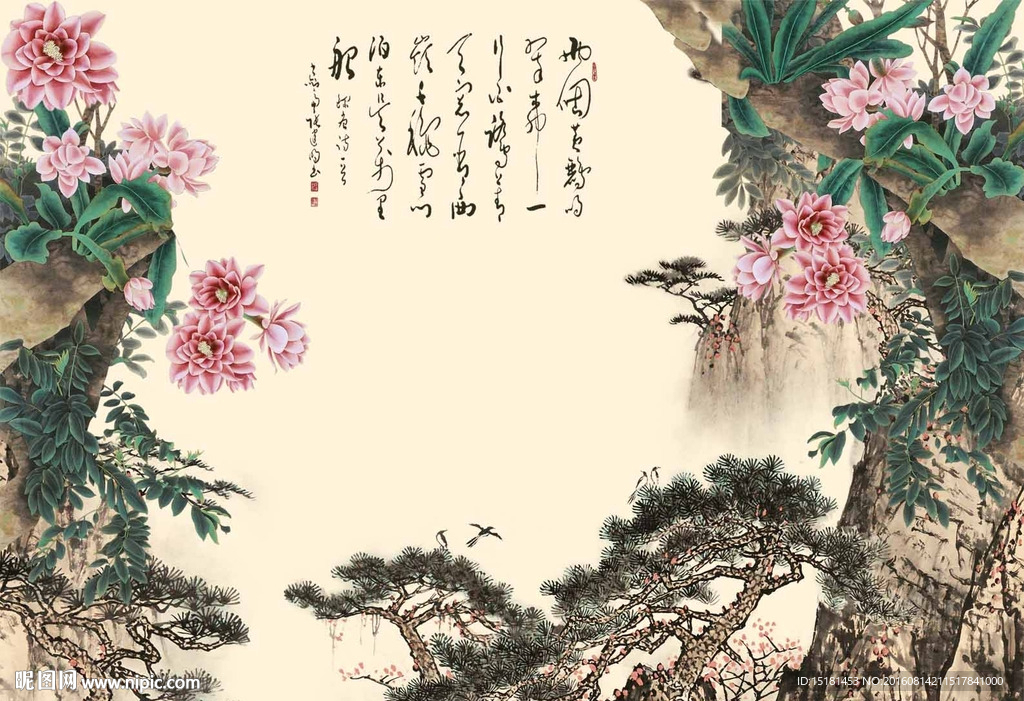 两個黄鹂鸣
翠柳一
行白鹭上青
天窗含西
岭千秋雪门
泊东吴万里
船
昵图网 www.nipic.com
ID:15181453 NO:20160814211517841000